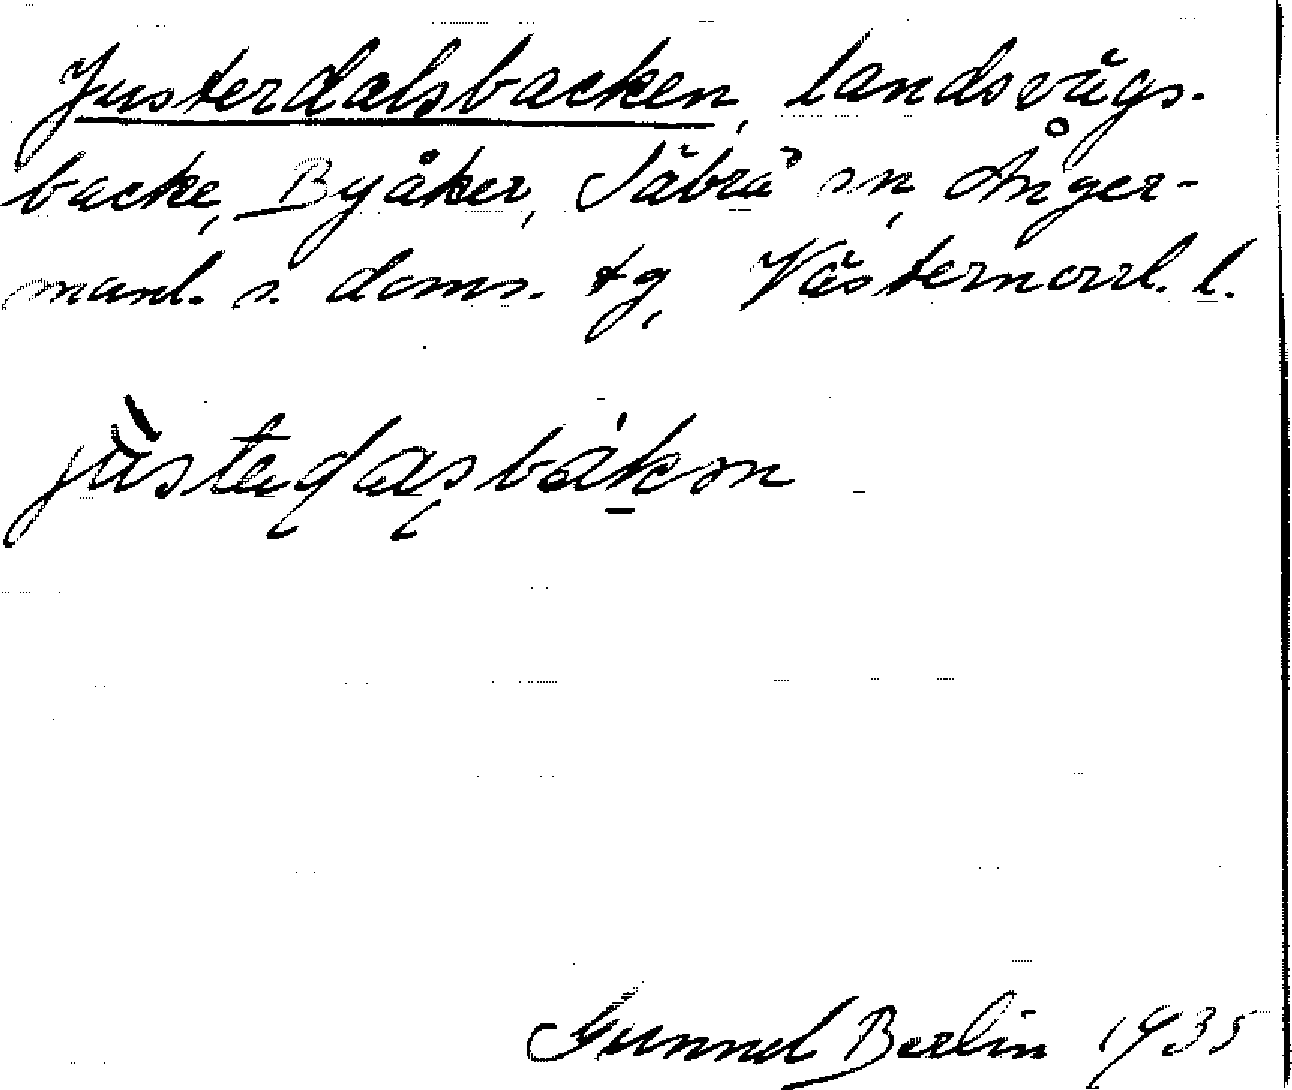 Justerdalsbacken, landsvägs-
backe, Byåker, Säbrå sn, Ånger-
manl. s. doms. tg, Västernorrl. l.
Gunnel Berlin 1935